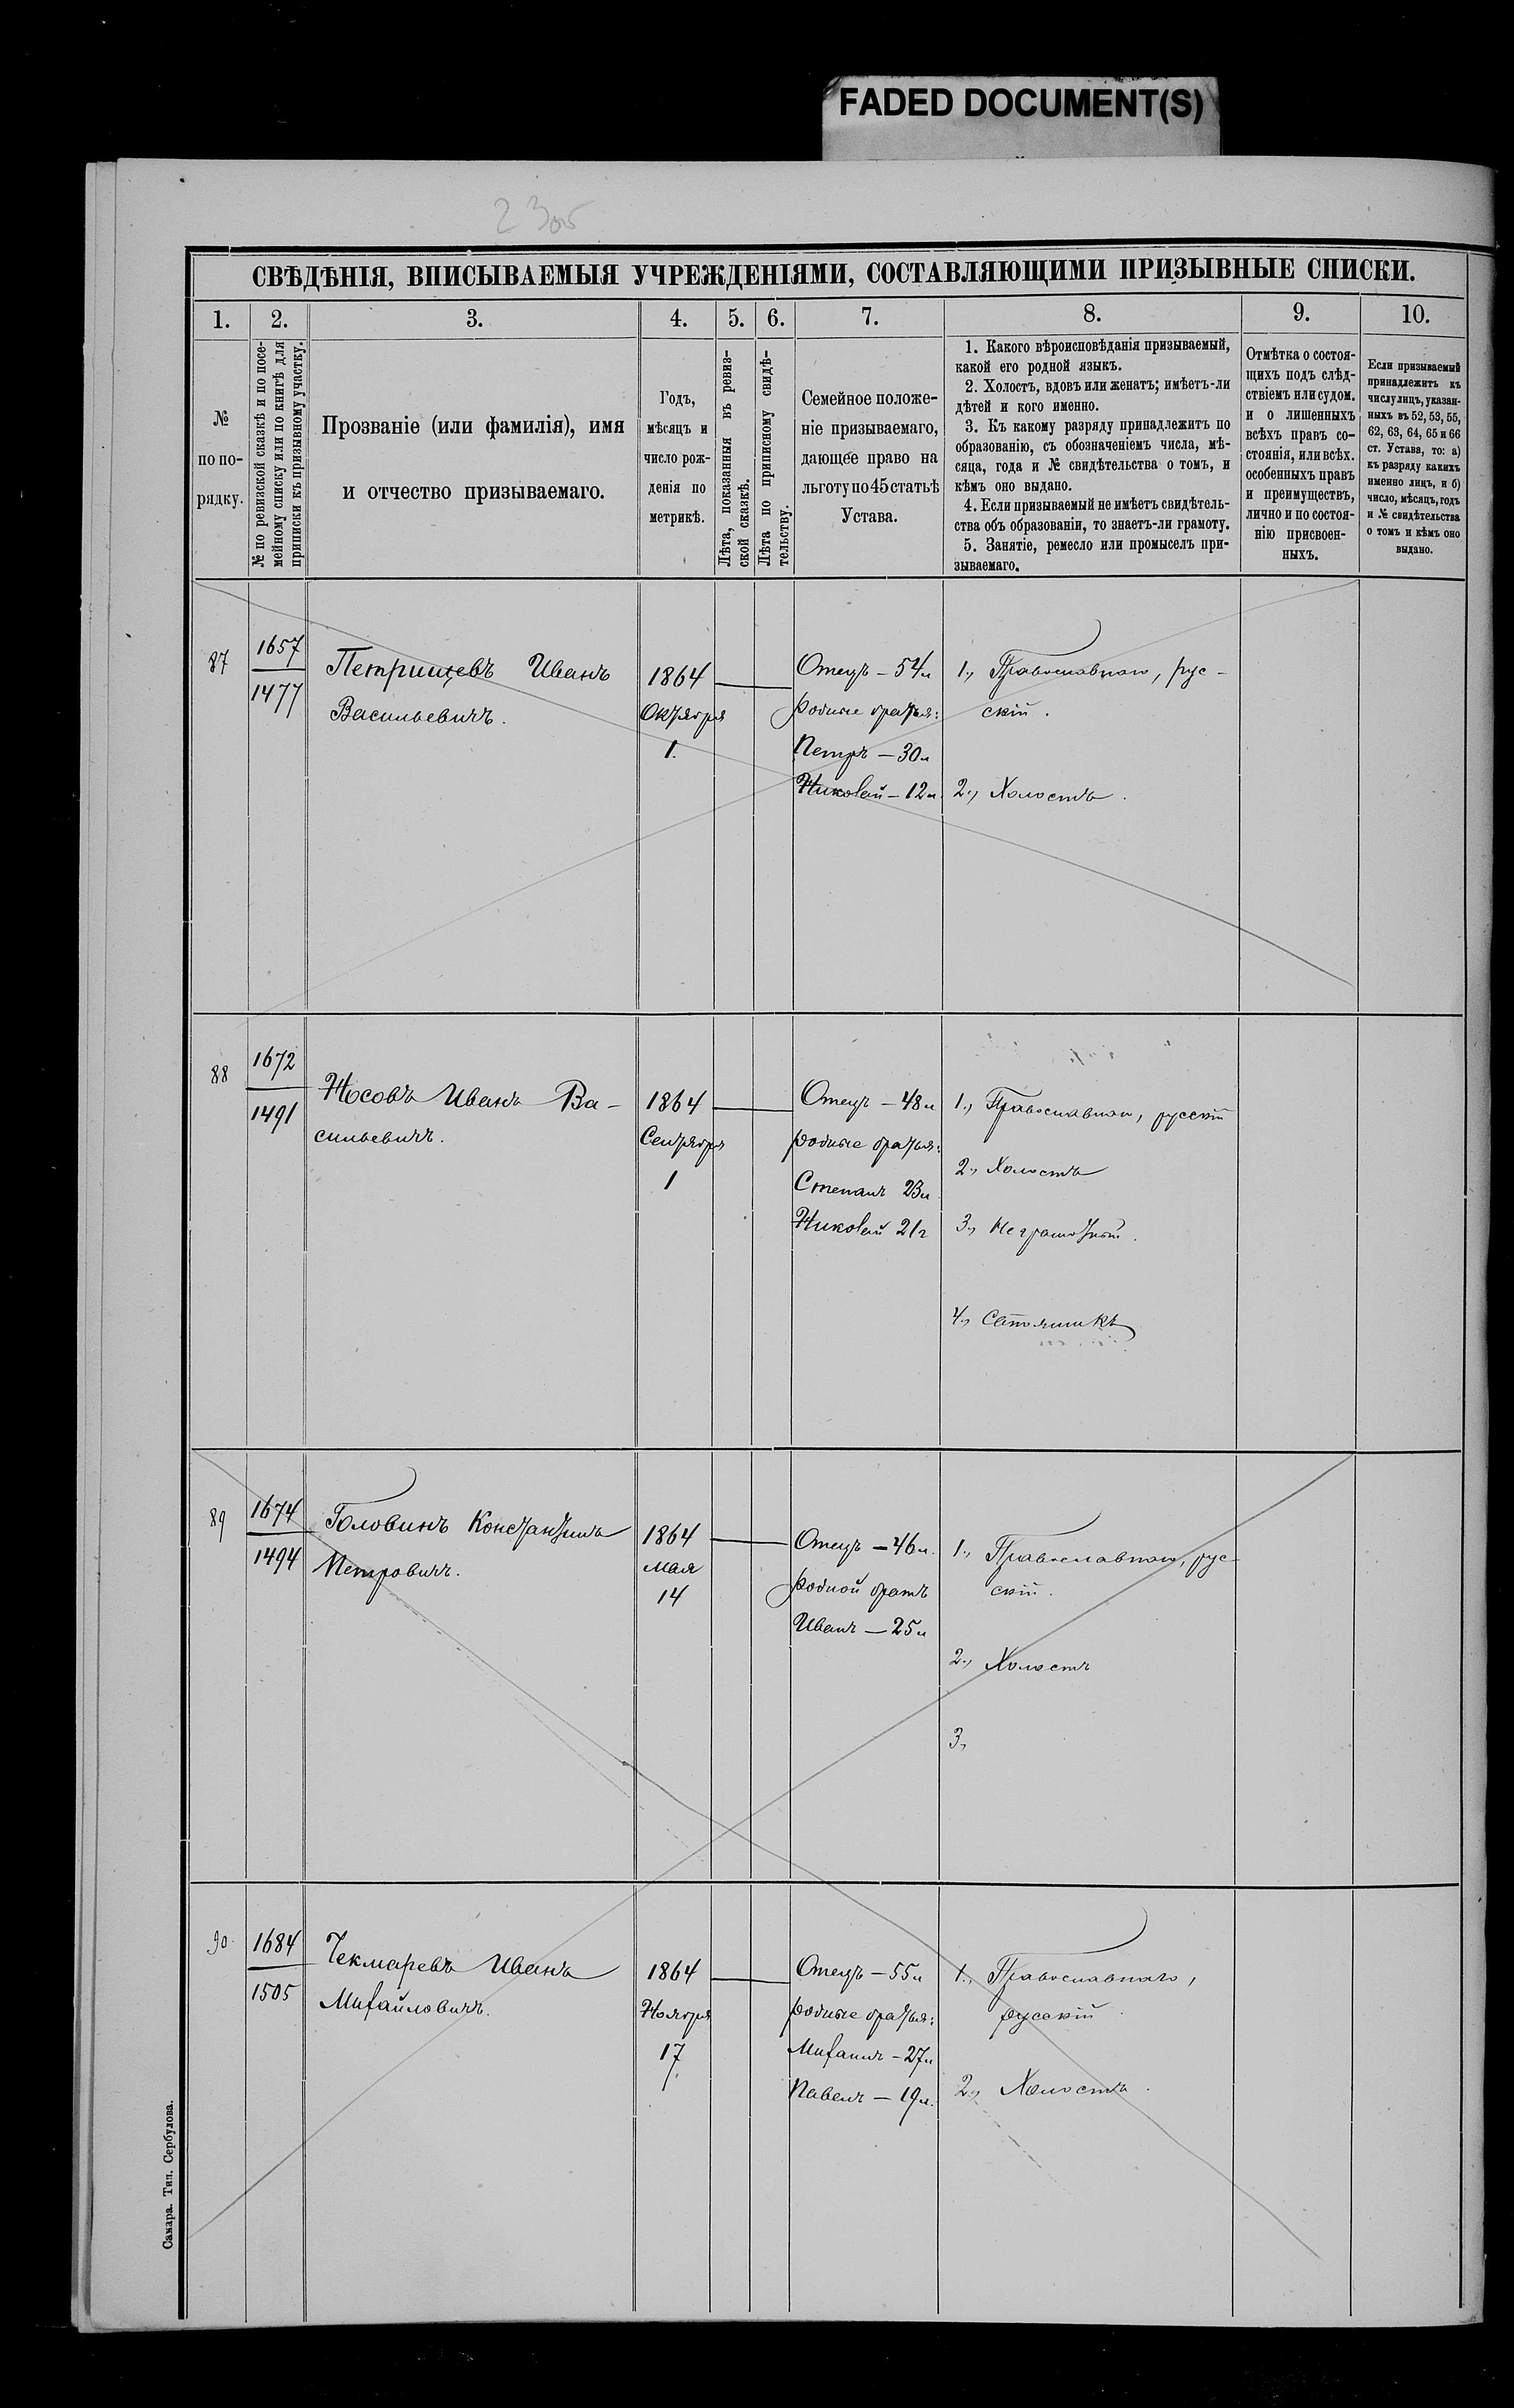 FADED DOCUMENT(S)
2305
СВѢДѢНІЯ, ВПИСЫВАЕМЫЯ УЧРЕЖДЕНІЯМИ, СОСТАВЛЯЮЩИМИ ПРИЗЫВНЫЕ СПИСКИ.
1.
2.
3.
4.
5.
6.
7.
8.
9.
10.
№
по по-
рядку.
№ по ревизской сказкѣ и по посе-
мейному списку или по книгѣ для
приписки къ призывному участку.
Прозваніе (или фамилія), имя
и отчество призываемаго.
Годъ,
мѣсяцъ и
число рож-
денія по
метрикѣ.
Лѣта, показанныя въ ревиз-
ской сказкѣ.
Лѣта по приписному свидѣ-
тельству.
Семейное положе-
ніе призываемаго,
дающее право на
льготу по 45 статьѣ
Устава.
1. Какого вѣроисповѣданія призываемый,
какой его родной языкъ.
2. Холостъ, вдовъ или женатъ; имѣетъ-ли
дѣтей и кого именно.
3. Къ какому разряду принадлежитъ по
образованію, съ обозначеніемъ числа, мѣ-
сяца, года и № свидѣтельства о томъ, и
кѣмъ оно выдано.
4. Если призываемый не имѣетъ свидѣтель-
ства объ образованіи, то знаетъ-ли грамоту.
5. Занятіе, ремесло или промыселъ при-
зываемаго.
Отмѣтка о состоя-
щихъ подъ слѣд-
ствіемъ или судом.
и о лишенныхъ
всѣхъ правъ со-
стоянія, или всѣх.
особенныхъ правъ
и преимуществъ,
лично и по состоя-
нію присвоен-
ныхъ.
Если призываемый
принадлежитъ къ
числу лицъ, указан-
ныхъ въ 52, 53, 55,
62, 63, 64, 65 и 66
ст. Устава, то: а)
къ разряду какихъ
именно лицъ, и б)
число, мѣсяцъ, годъ
и № свидѣтельства
о томъ и кѣмъ оно
выдано.
87
1657
1477
Петрищевъ Иванъ
Васильевичъ.
1864
Октября
1.
Отецъ – 54 л
Родные братья:
Петръ – 30 л
Николай – 12 л.
1., Православнаго, рус-
скій.
2., Холостъ.
88
1672
1491
Носовъ Иванъ Ва-
сильевичъ.
1864
Сентября
1
Отецъ – 48 л
родные братья:
Степанъ 23 л.
Николай 21 г
1., Православнаго, русскій
2., Холостъ
3., Неграмотный.
4.,
89
1674
1494
Головинъ Константинъ
Петровичъ.
1864
Мая
14
Отецъ – 46 л.
Родной братъ
Иванъ – 25 л
1., Православнаго, рус-
скій.
2., Холостъ
3.,
90
1684
1505
Чекмаревъ Иванъ
Михайловичъ.
1864
Ноября
17
Отецъ – 55 л
родные братья:
Михаилъ – 27 л
Павелъ – 19 л.
1., Православнаго,
русскій.
2., Холостъ.
Самара. Тип. Сербулова.